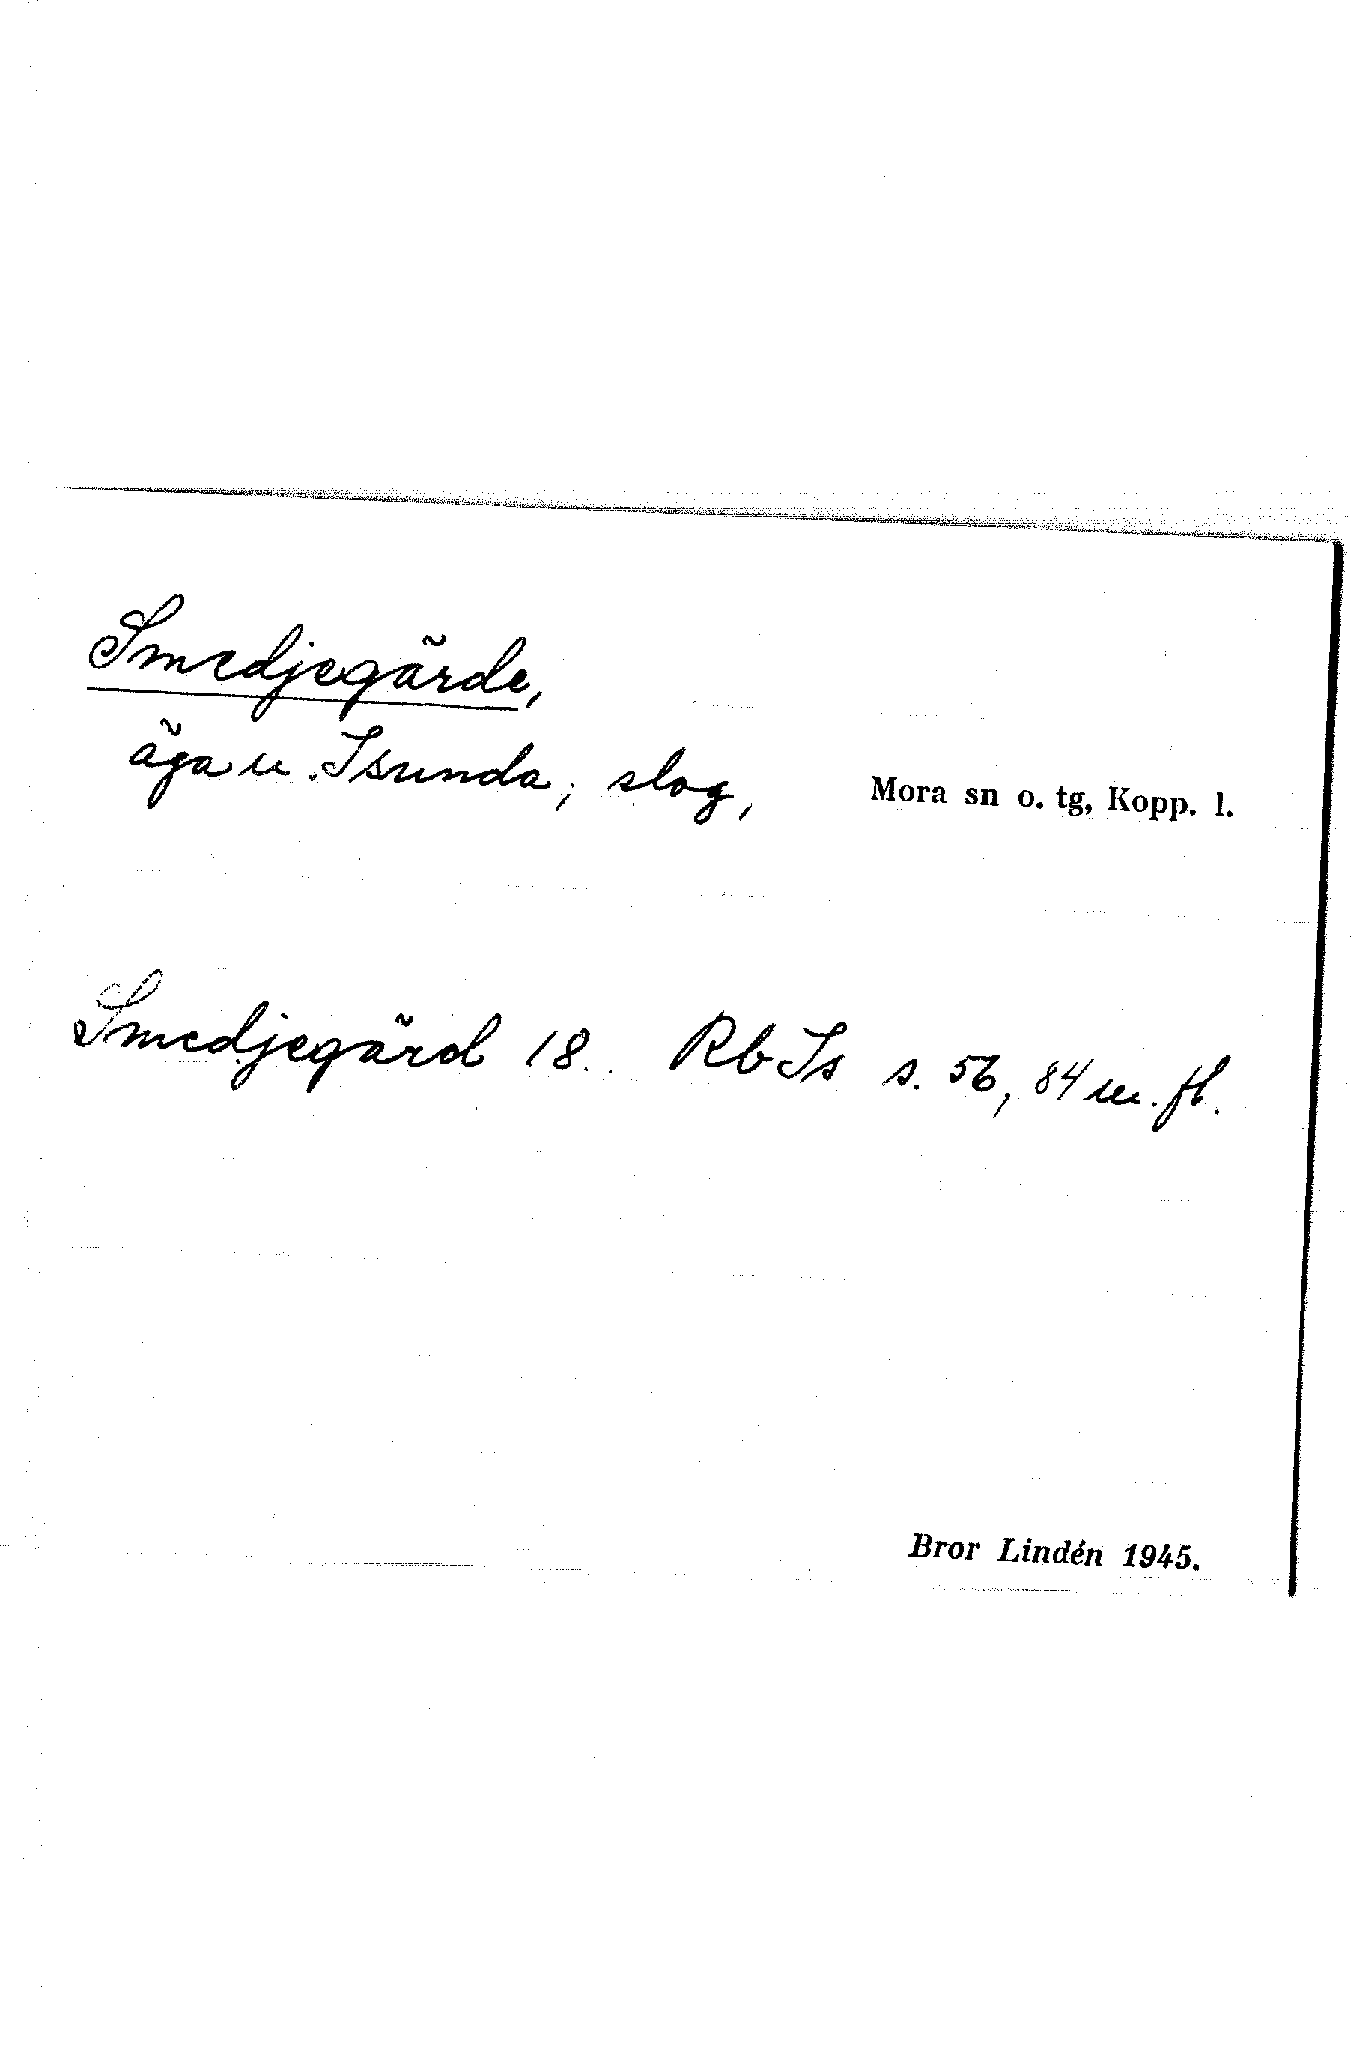 Smedjegärde,
äga u. Isunda; slog, Mora sn o. tg, Kopp. l.
Smedjegärd 18.. Rb Is s. 56, 84 m. fl.
Bror Lindén 1945.